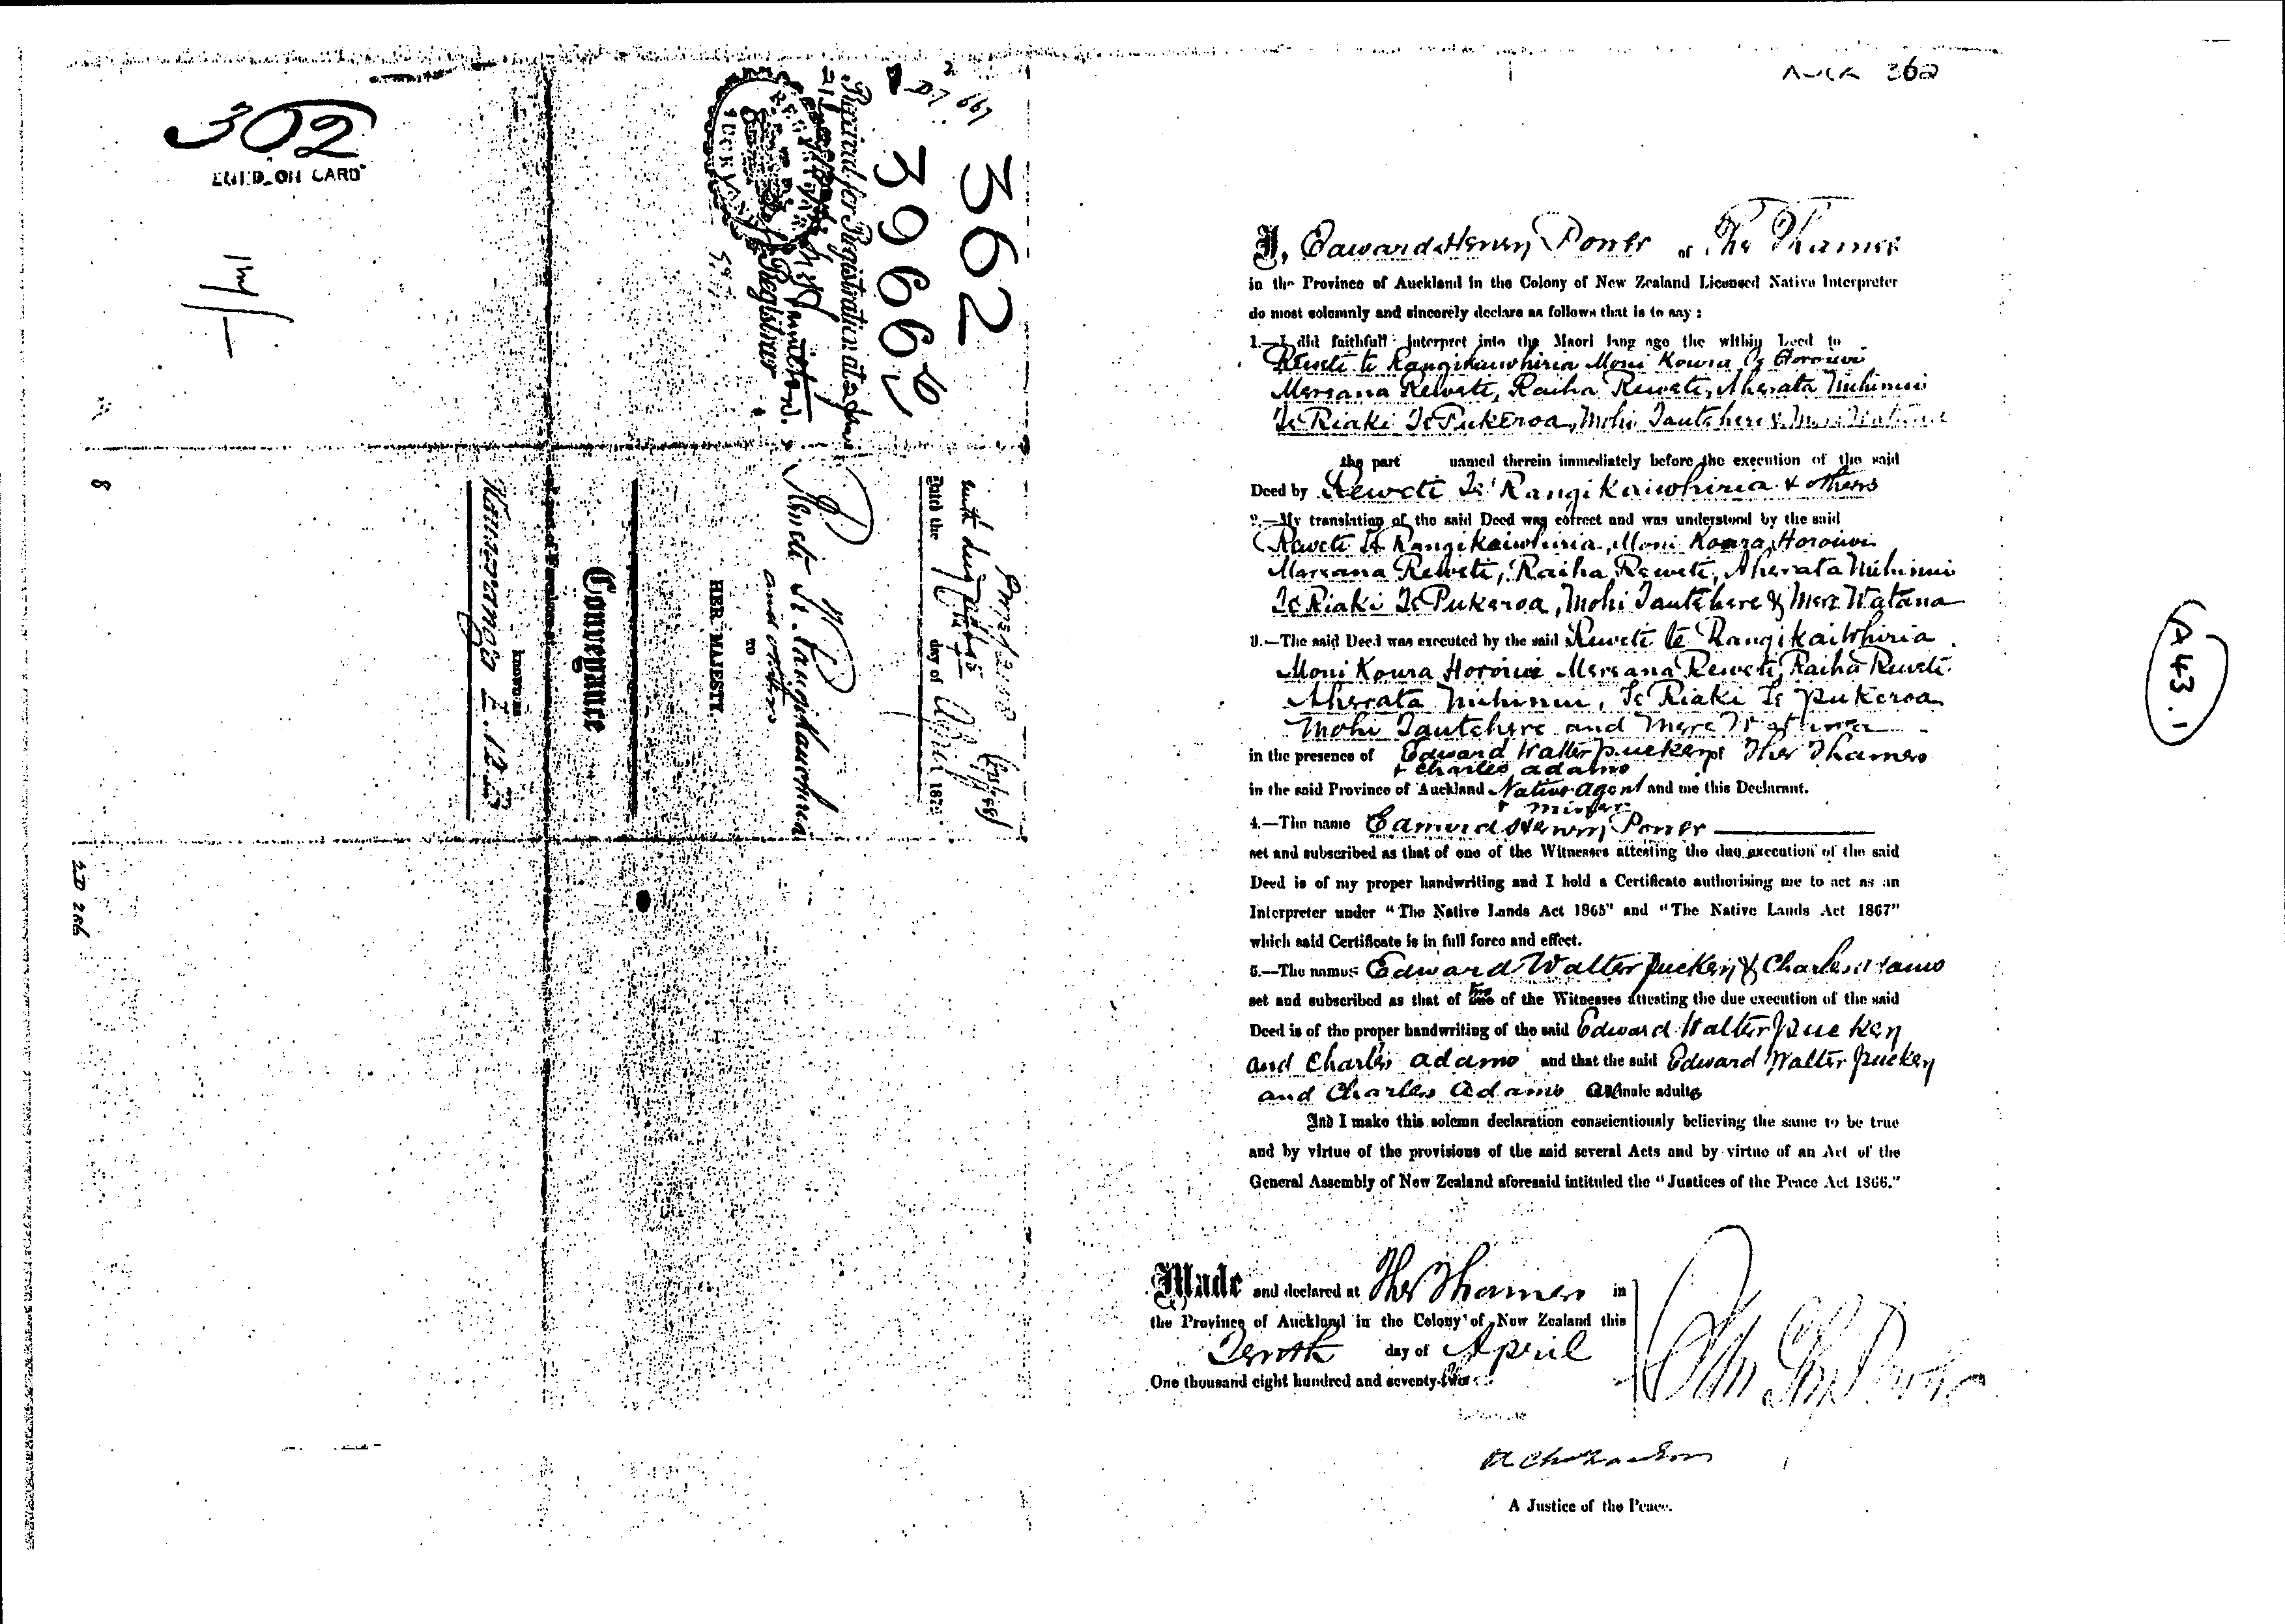 AUCK 362
302
ENTD ON CARD
14/-
362
39666
Received for Registration at
Registrar
AUCKLAND
Dated the Tenth day of April 187
Reweti Te Rangikaiwhiria
and others
TO
HER MAJESTY
Conveyance
KNOWN AS
8
2D 286
A43.1
I, Edward Henry Power of The Thames
in the Province of Auckland in the Colony of New Zealand Licensed Native Interpreter
do most solemnly and sincerely declare as follows that is to say :
1.—I did faithfully interpret into the Maori language the within Deed to
Reweti te Rangikaiwhiria Moni Koura Horowi
Mereana Reweti, Raiha Reweti, Aherata Mihinui
Te Riaki Te Pukeroa, Mohi Tautehere & Mere Watana
the part named therein immediately before the execution of the said
Deed by Reweti Te Rangikaiwhiria & others
2.—My translation of the said Deed was correct and was understood by the said
Reweti Te Rangikaiwhiria, Moni Koura Horowi
Mereana Reweti, Raiha Reweti, Aherata Mihinui
Te Riaki Te Pukeroa, Mohi Tautehere & Mere Watana
3.—The said Deed was executed by the said Reweti te Rangikaiwhiria
Moni Koura Horowi Mereana Reweti, Raiha Reweti
Aherata Mihinui, Te Riaki Te Pukeroa
Mohi Tautehere and Mere Watana
in the presence of Edward Walter Puckey of The Thames
& Charles Adams
in the said Province of Auckland Native Agent and me this Declarant.
& Miner
4.—The name Edward Henry Power
set and subscribed as that of one of the Witnesses attesting the due execution of the said
Deed is of my proper handwriting and I hold a Certificate authorising me to act as an
Interpreter under "The Native Lands Act 1865" and "The Native Lands Act 1867"
which said Certificate is in full force and effect.
5.—The names Edward Walter Puckey & Charles Adams
set and subscribed as that of two of the Witnesses attesting the due execution of the said
Deed is of the proper handwriting of the said Edward Walter Puckey
and Charles Adams and that the said Edward Walter Puckey
and Charles Adams are male adults
And I make this solemn declaration conscientiously believing the same to be true
and by virtue of the provisions of the said several Acts and by virtue of an Act of the
General Assembly of New Zealand aforesaid intituled the "Justices of the Peace Act 1866."
Made and declared at The Thames in
the Province of Auckland in the Colony of New Zealand this
Tenth day of April
One thousand eight hundred and seventy-two
A Justice of the Peace.